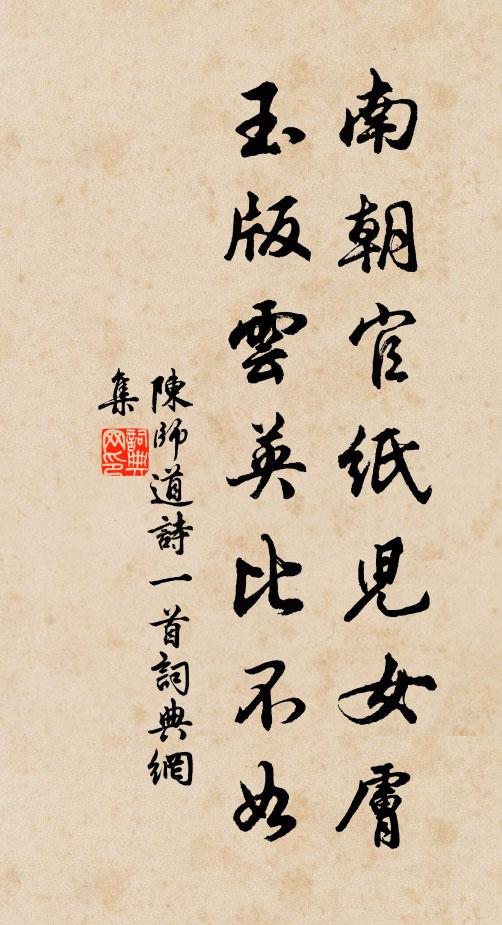 南朝官紙兒女膚
玉版雲英比不如
陳師道詩一首詞典網
集
詞典網印